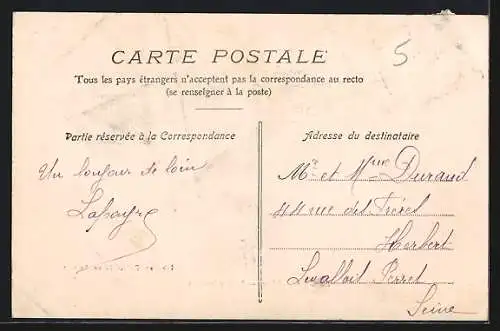 CARTE POSTALE
5
Tous les pays étrangers n'acceptent pas la correspondance au recto
(se renseigner à la poste)
Partie réservée à la Correspondance
Un bonjour de loin
Adresse du destinataire
Mr et Mme Durand
44 rue des Frères
Herbert
Levallois Perret
Seine